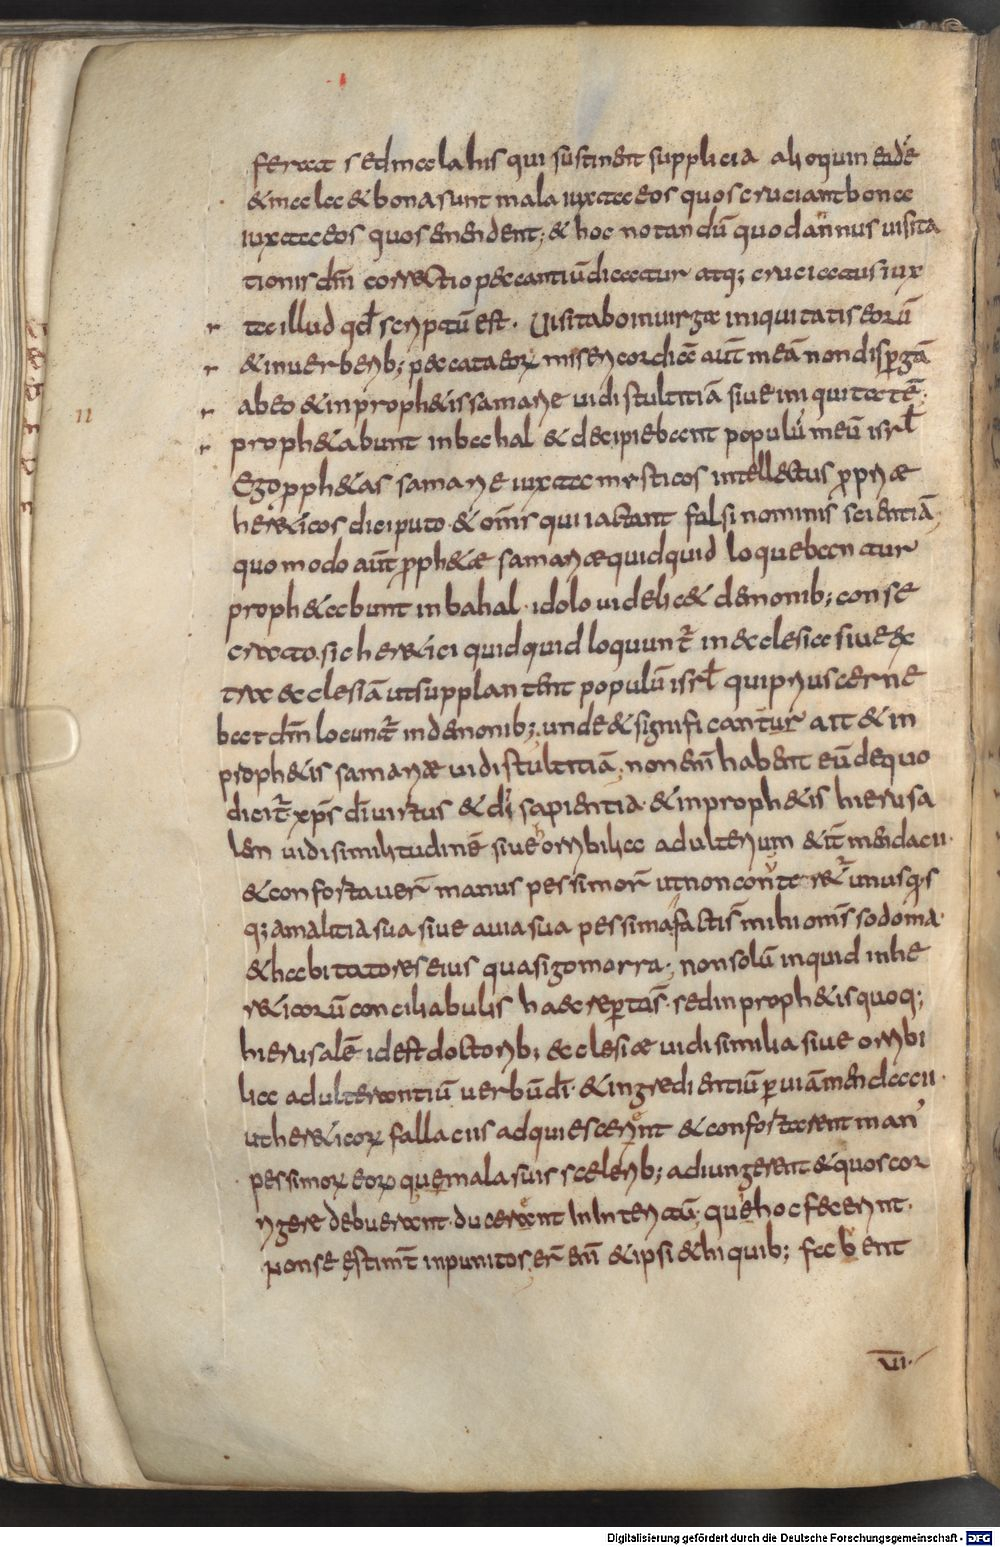 ferat sed mala his qui sustinent supplicia alioquin eidē
& mala & bona sunt mala iuxta eos quos cruciant bona
iuxta eos quos emendent; & hoc notandū quod annus uisita
tionis dm̄ correctio peccantiū dicatur atq; cruciatus iux
ta illud qđ scriptū est. Uisitabo in uirga iniquitatis eorū
& in uerberib; peccata eoꝝ misericordiā aut̄ meā non dispgā
ab eo & in proph&is samariæ uidi stultitiā siue iniquitatē;
proph&abunt in bahal & decipiebant populū meū isrł
Ego pph&as samariæ iuxta mysticos intellectus ppriæ
her&icos dici puto & om̄s qui iactant falsi nominis scientiā;
quomodo aut̄ pph&æ samariæ quidquid loquebantur
proph&abunt in bahal idolo uidelic& demonib; conse
crato. sic her&ici quidquid loquunt̄ in ecclesia siue ex
tra ecclesiā ut supplantent populū isrł qui prius cerne
bat dm̄ locunt̄ in demonib; unde & significantur ait & in
proph&is samariæ uidi stultitiā; non enī habent eū de quo
dicit̄ xp̄s dī uirtus & dī sapientia & in proph&is hierusa
lem uidi similitudinē siue orribilia adulterium & it̄ mendaciī
& confortauer̄ manus pessimor̄ ut non conuerteret̄ unusq̄s
q; a malitia sua siue a uia sua pessima facti st̄ mihi om̄s sodoma
& habitatores eius quasi gomorra; non solū inquid in he
r&icorū conciliabulis haec repta st̄. sed in proph&is quoq;
hierusalē id est doctorib; ecclesiæ uidi similia siue orribi
lia adulterantiū uerbū dī & ingredientiū p uiā mendacii
ut her&icoꝝ fallaciis adquiescerent & confortarent man'
pessimoꝝ eoꝝ que mala suis scelerib; adiungerent & quos cor
rigere debuerant ducerent in interitū; que hoc fecerint
non se estiment inpunitos; er̄ enī & ipsi & hi quib; fab ent
VI
11
Digitalisierung gefördert durch die Deutsche Forschungsgemeinschaft - DFG